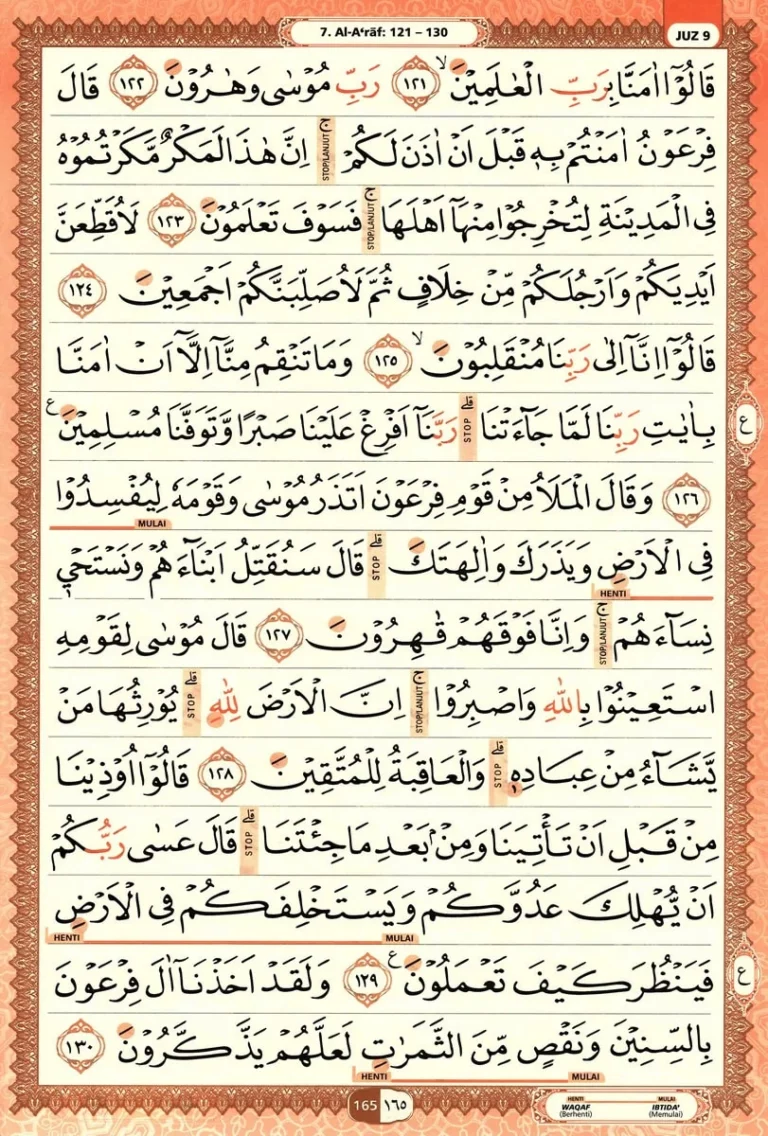 7. Al-A‘rāf: 121 – 130
JUZ 9
قَالُوْٓا اٰمَنَّا بِرَبِّ الْعٰلَمِيْنَۙ ١٢١ رَبِّ مُوْسٰى وَهٰرُوْنَ ١٢٢ قَالَ
فِرْعَوْنُ اٰمَنْتُمْ بِهٖ قَبْلَ اَنْ اٰذَنَ لَكُمْۚ STOP/LANJUT اِنَّ هٰذَا لَمَكْرٌ مَّكَرْتُمُوْهُ
فِى الْمَدِيْنَةِ لِتُخْرِجُوْا مِنْهَآ اَهْلَهَاۚ STOP/LANJUT فَسَوْفَ تَعْلَمُوْنَ ١٢٣ لَاُقَطِّعَنَّ
اَيْدِيَكُمْ وَاَرْجُلَكُمْ مِّنْ خِلَافٍ ثُمَّ لَاُصَلِّبَنَّكُمْ اَجْمَعِيْنَ ١٢٤
قَالُوْٓا اِنَّآ اِلٰى رَبِّنَا مُنْقَلِبُوْنَۙ ١٢٥ وَمَا تَنْقِمُ مِنَّآ اِلَّآ اَنْ اٰمَنَّا
بِاٰيٰتِ رَبِّنَا لَمَّا جَاۤءَتْنَاۗ STOP رَبَّنَآ اَفْرِغْ عَلَيْنَا صَبْرًا وَّتَوَفَّنَا مُسْلِمِيْنَ ع
ع
١٢٦ وَقَالَ الْمَلَاُ مِنْ قَوْمِ فِرْعَوْنَ اَتَذَرُ مُوْسٰى وَقَوْمَهٗ لِيُفْسِدُوْا
MULAI
فِى الْاَرْضِ وَيَذَرَكَ وَاٰلِهَتَكَۗ STOP قَالَ سَنُقَتِّلُ اَبْنَاۤءَهُمْ وَنَسْتَحْيٖ
HENTI
نِسَاۤءَهُمْۚ STOP/LANJUT وَاِنَّا فَوْقَهُمْ قٰهِرُوْنَ ١٢٧ قَالَ مُوْسٰى لِقَوْمِهِ
اسْتَعِيْنُوْا بِاللّٰهِ وَاصْبِرُوْاۚ STOP/LANJUT اِنَّ الْاَرْضَ لِلّٰهِۗ STOP يُوْرِثُهَا مَنْ
يَّشَاۤءُ مِنْ عِبَادِهٖۗ STOP وَالْعَاقِبَةُ لِلْمُتَّقِيْنَ ١٢٨ قَالُوْٓا اُوْذِيْنَا
مِنْ قَبْلِ اَنْ تَأْتِيَنَا وَمِنْۢ بَعْدِ مَا جِئْتَنَاۗ STOP قَالَ عَسٰى رَبُّكُمْ
اَنْ يُّهْلِكَ عَدُوَّكُمْ وَيَسْتَخْلِفَكُمْ فِى الْاَرْضِ
MULAI HENTI
فَيَنْظُرَ كَيْفَ تَعْمَلُوْنَ ع ١٢٩ وَلَقَدْ اَخَذْنَآ اٰلَ فِرْعَوْنَ
ع
بِالسِّنِيْنَ وَنَقْصٍ مِّنَ الثَّمَرٰتِ لَعَلَّهُمْ يَذَّكَّرُوْنَ ١٣٠
MULAI HENTI
165 ١٦٥
HENTI MULAI
WAQAF IBTIDA'
(Berhenti) (Memulai)